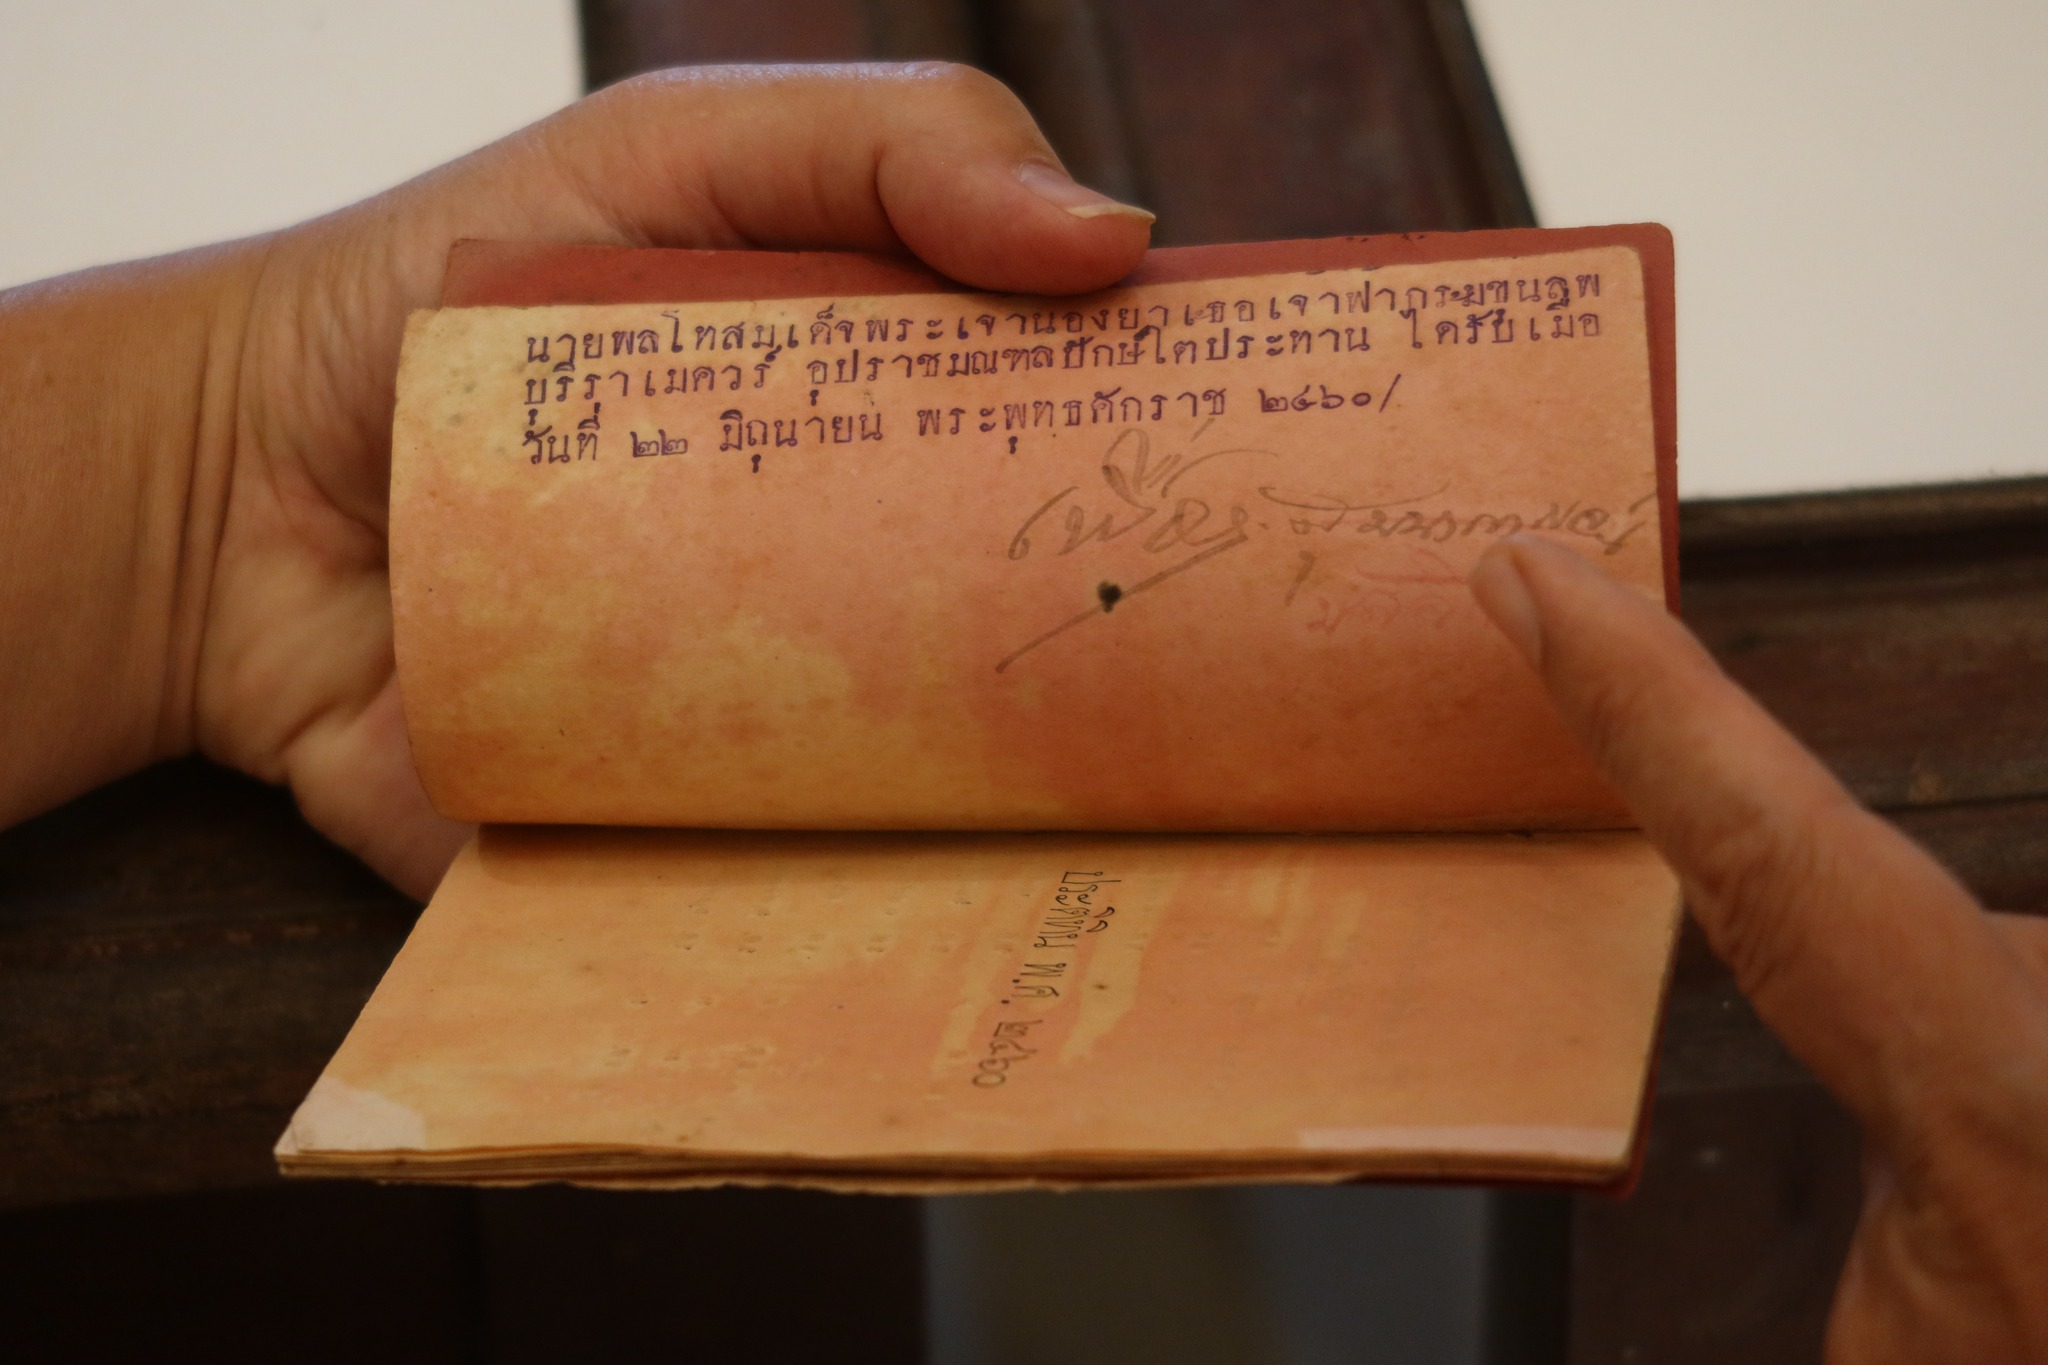 นายพลโทสมเด็จพระเจ้าน้องยาเธอเจ้าฟ้ากรมขุนลพ
บุรีราเมศวร์ อุปราชมณฑลปักษ์ใต้ประทาน ได้รับเมื่อ
วันที่ ๒๒ มิถุนายน พระพุทธศักราช ๒๔๖๐/
ประติทิน พ.ศ. ๒๔๖๐